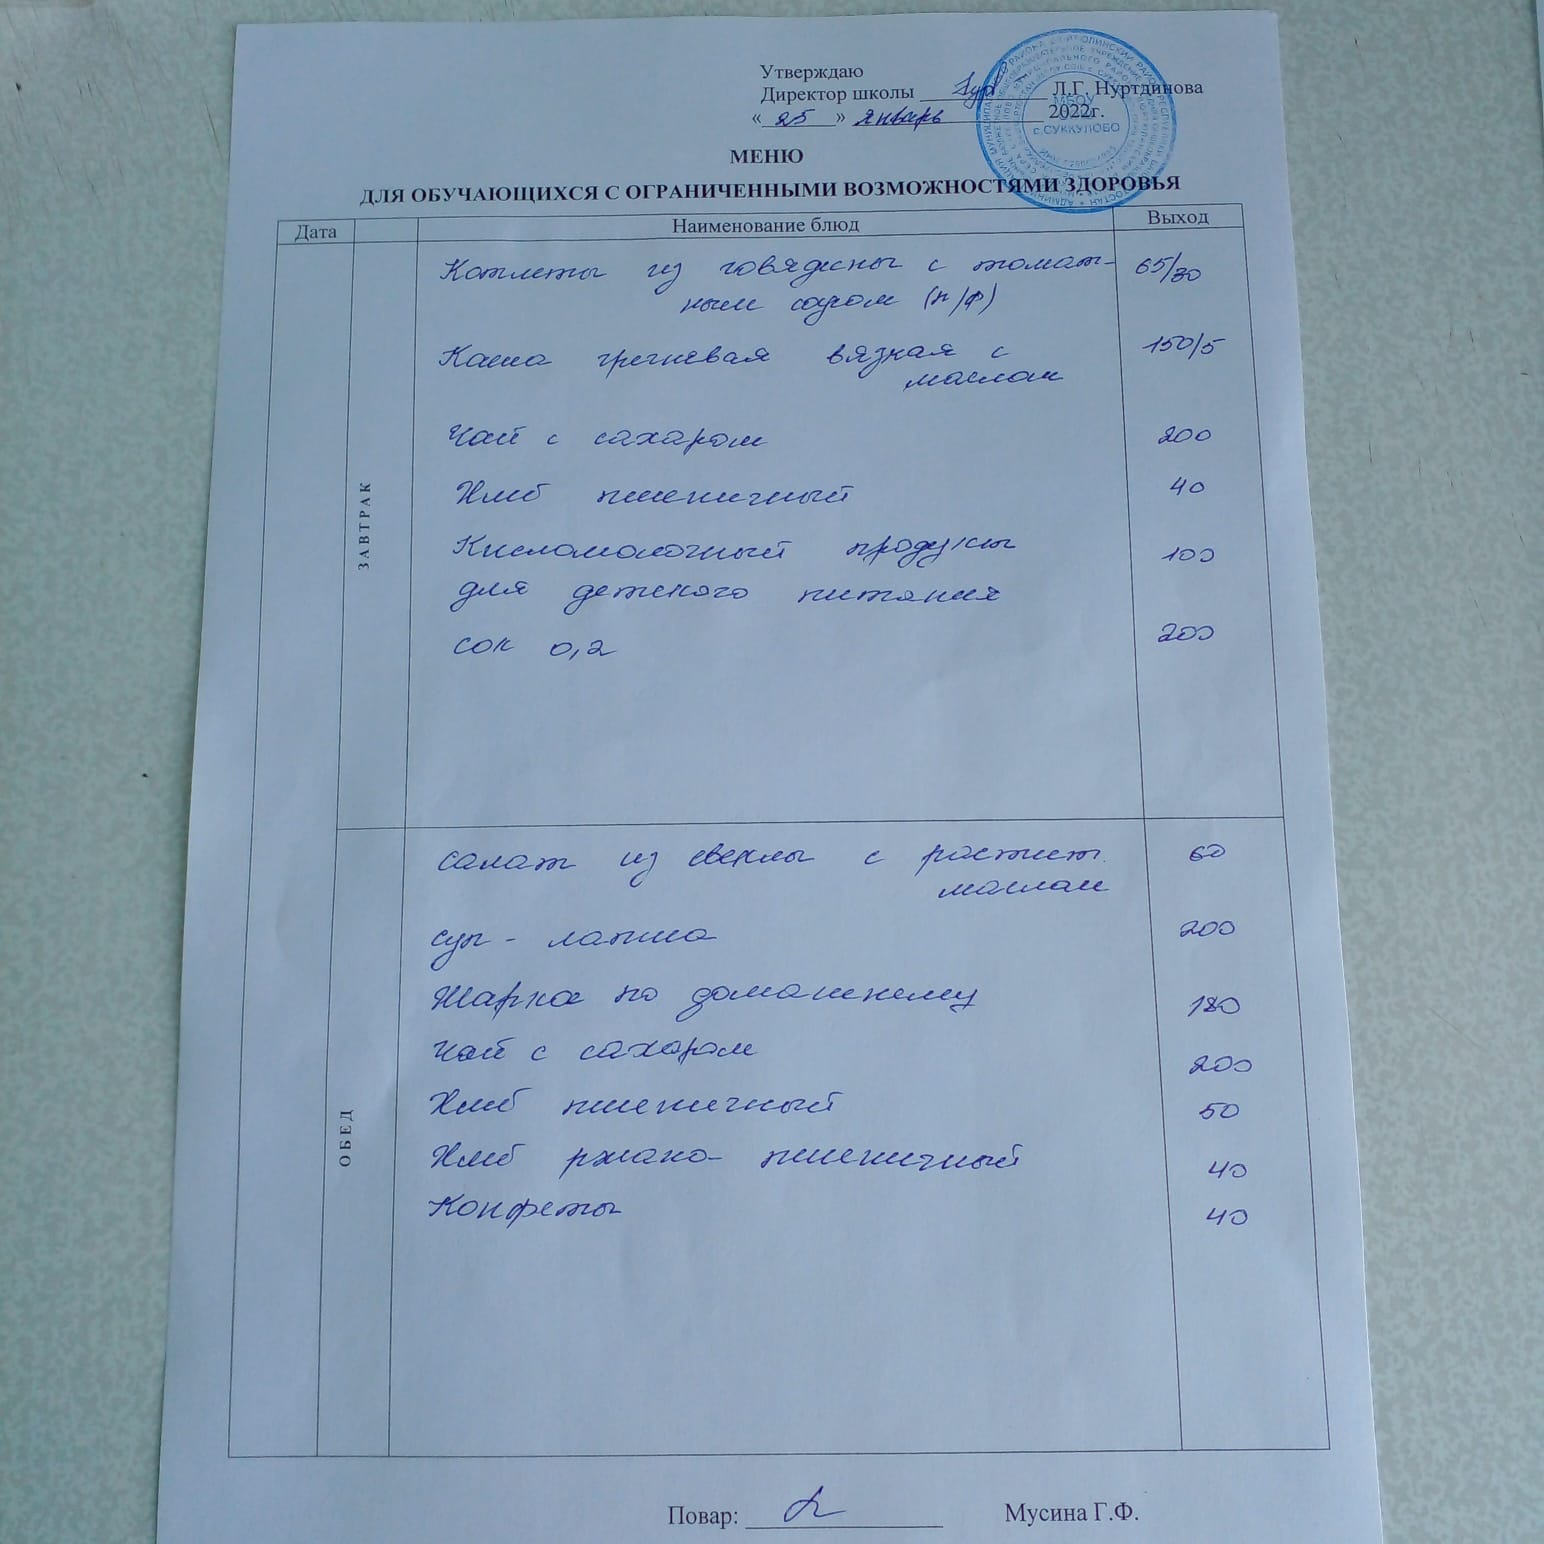 Утверждаю
Директор школы Л.Г. Нуртдинова
«25» январь 2022г.
МБОУ
с.СУККУЛОВО
МЕНЮ
ДЛЯ ОБУЧАЮЩИХСЯ С ОГРАНИЧЕННЫМИ ВОЗМОЖНОСТЯМИ ЗДОРОВЬЯ
Дата Наименование блюд Выход
ЗАВТРАК
Котлеты из говядины с томат- 65/30
ным соусом (п/ф)
Каша гречневая вязкая с 150/5
маслом
Чай с сахаром 200
Хлеб пшеничный 40
Кисломолочный продукт 100
для детского питания
сок 0,2 200
ОБЕД
салат из свеклы с растит. 60
маслом
суп - лапша 200
Жаркое по домашнему 180
Чай с сахаром 200
Хлеб пшеничный 50
Хлеб ржано- пшеничный 40
Конфеты 40
Повар: Мусина Г.Ф.